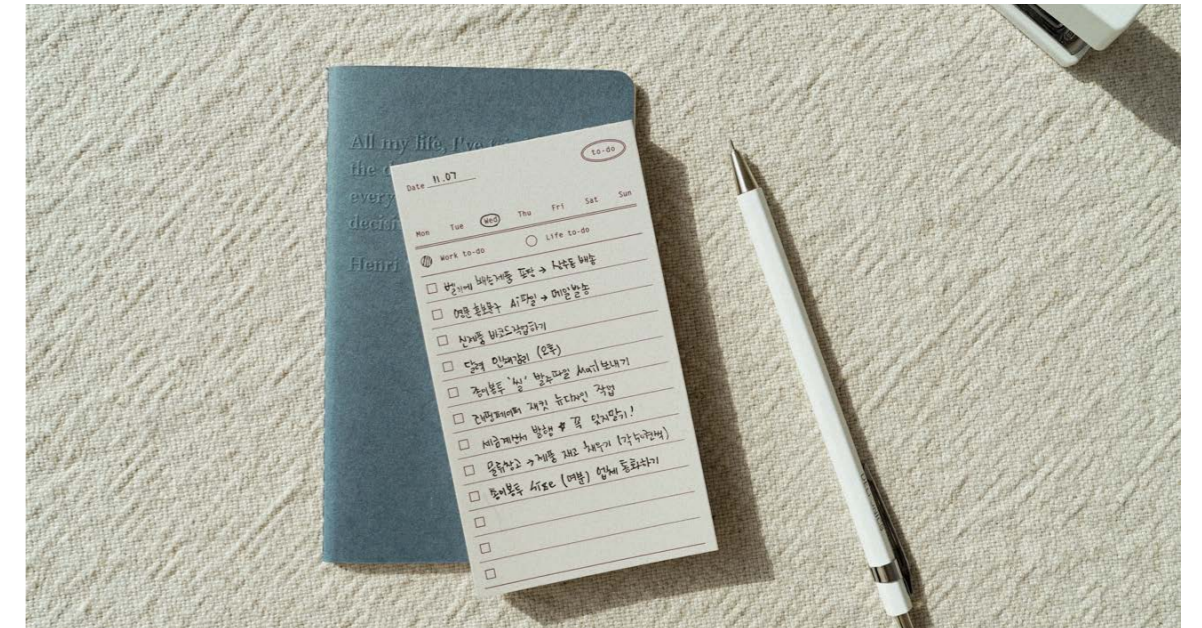 All my life, I've
the
every
Henri
to-do
Date 11.07
Mon Tue Wed Thu Fri Sat Sun
Work to-do Life to-do
배송제품 포장 → 성수동 배송
영문 홍보문구 Ai파일 → 메일발송
신제품 바코드작업하기
달력 인쇄감리 (오후)
종이봉투 '씰' 발주파일 Mail 보내기
래핑페이퍼 재킷 뉴디자인 작업
세금계산서 발행 꼭 잊지말기!
물류창고 → 제품 재고 채우기
종이봉투 size (대분) 업체 통화하기